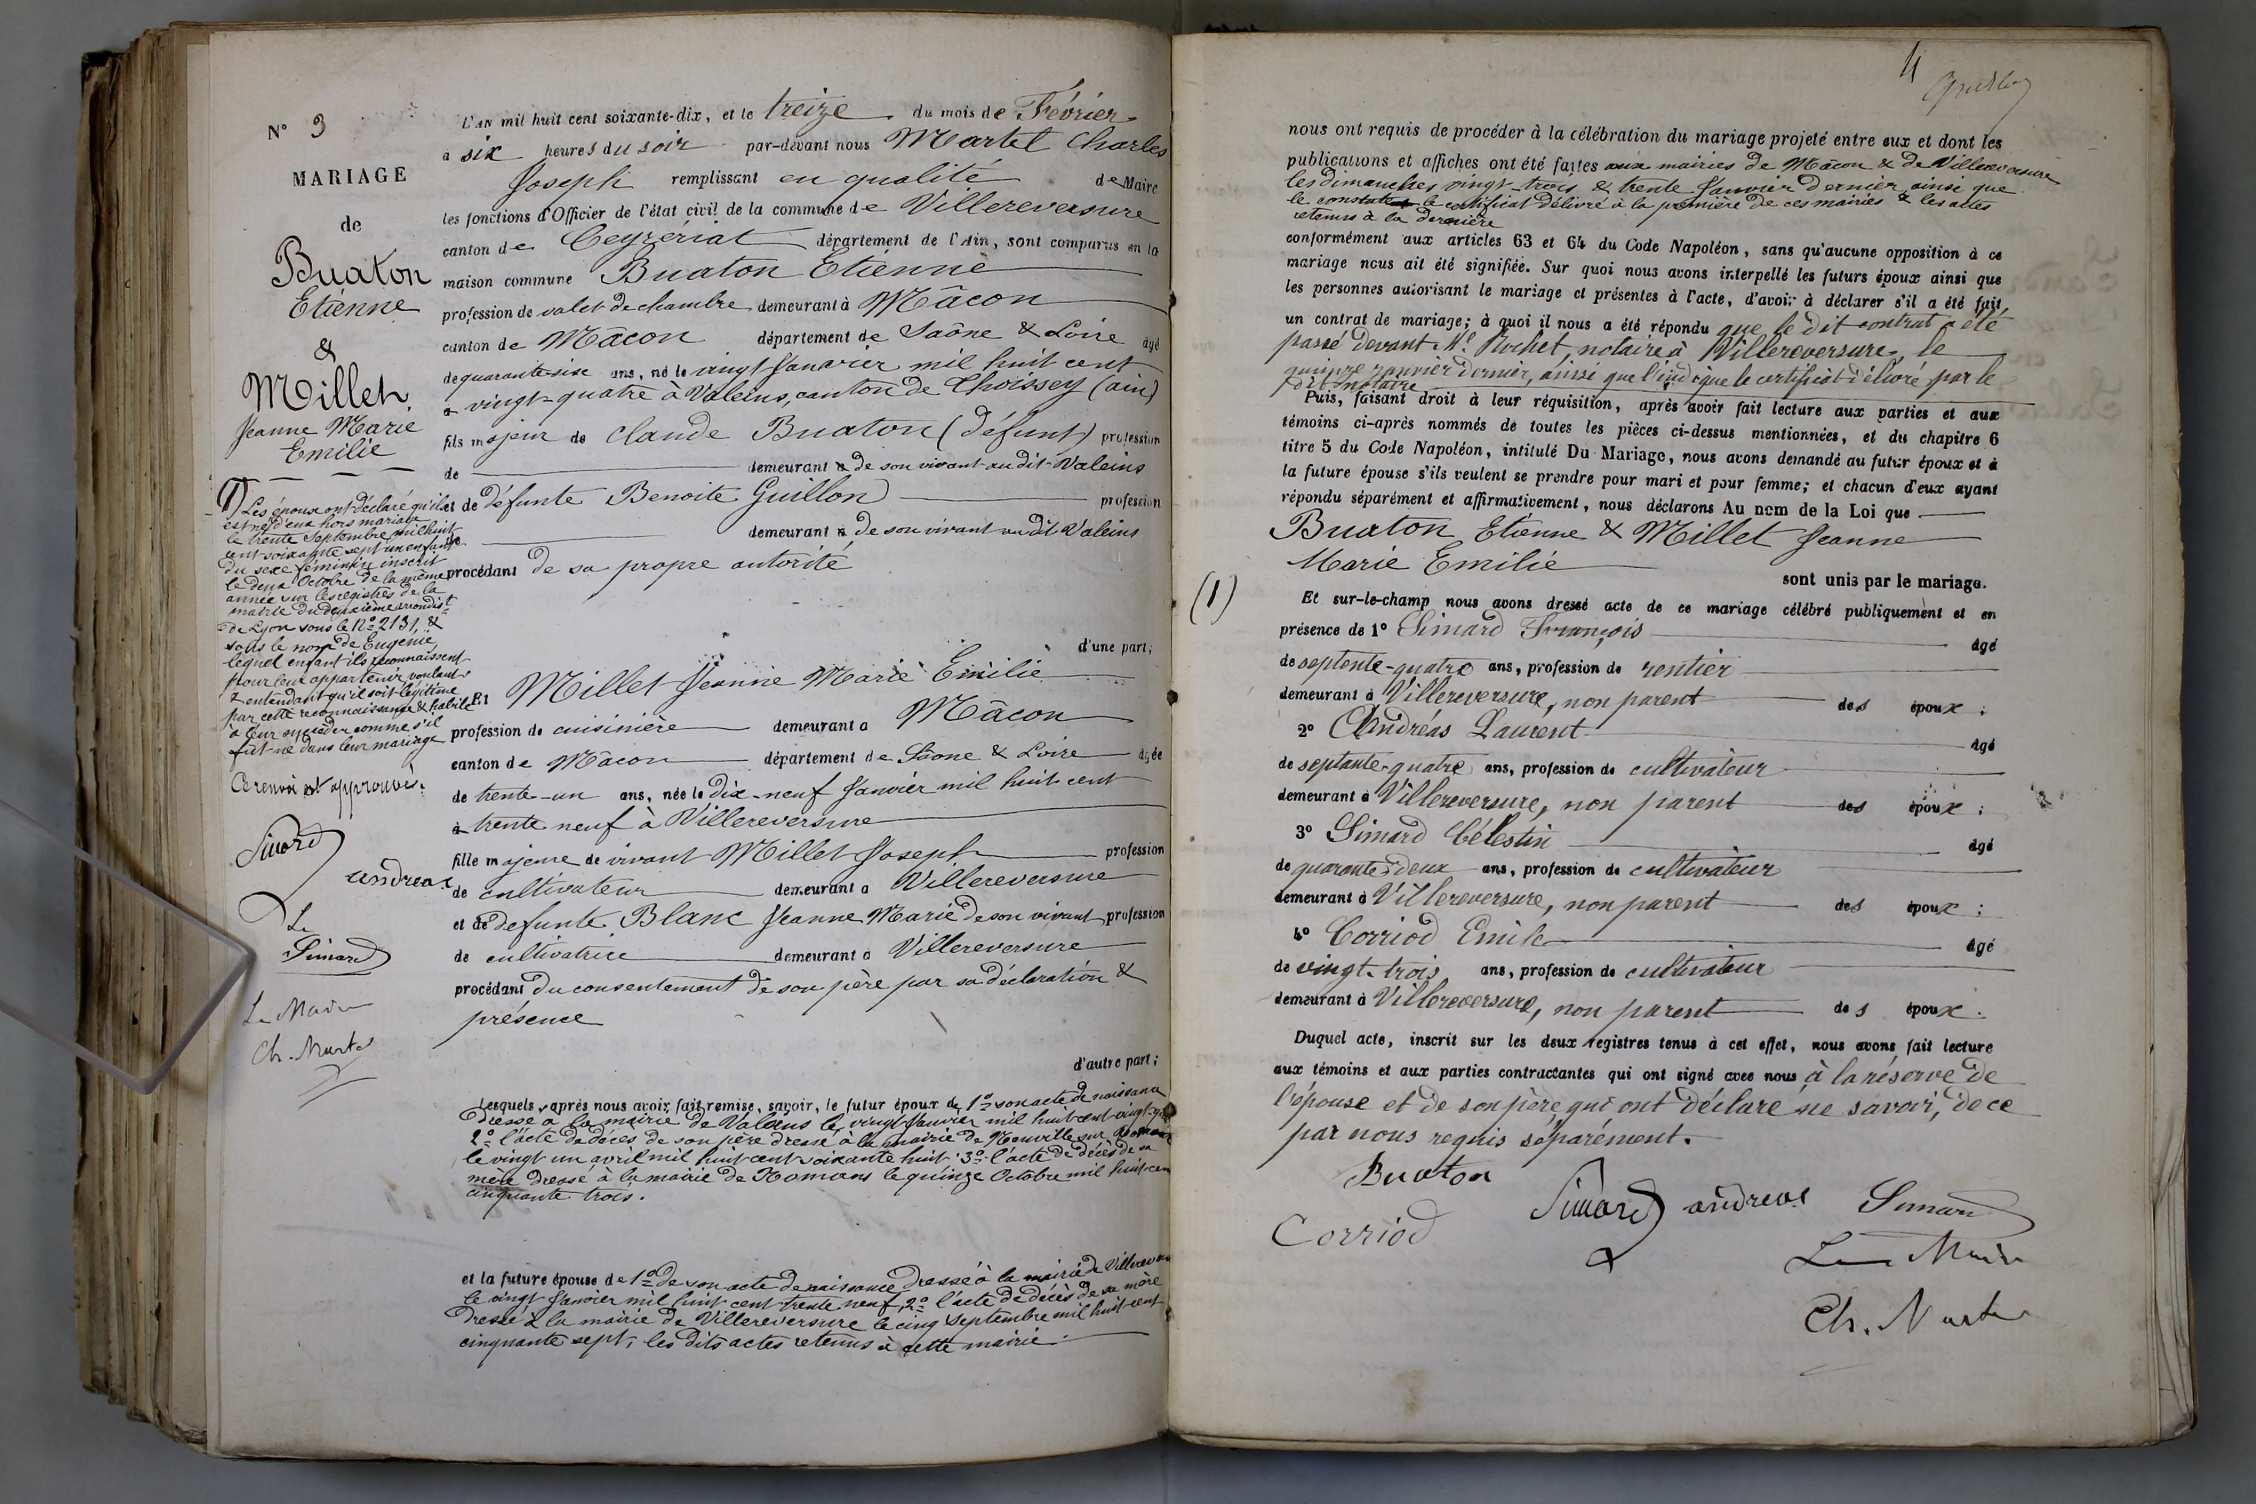 N° 3
MARIAGE
de
Buaton
Etienne
&
Millet
Jeanne Marie
Emilie
(1) Les époux ont déclaré qu'il
est né d'eux hors mariage
le trente Septembre mil huit
cent soixante sept un enfant
du sexe féminin inscrit
le deux Octobre de la même
année sur les registres de la
mairie du deuxième arrondist
de Lyon sous le N° 2131, &
sous le nom de Eugénie
lequel enfant ils reconnaissent
pour leur appartenir voulant
& entendant qu'il soit légitime
par cette reconnaissance & habile
à leur succéder comme s'il
fût né dans leur mariage
Ce renvoi est approuvé.
Simard
andreas
Le
Simard
Le Maire
Ch. Martel
L'AN mil huit cent soixante-dix, et le treize du mois de Février
à six heures du soir par-devant nous Martel Charles
Joseph remplissant en qualité de Maire
les fonctions d'Officier de l'état civil de la commune de Villereversure
canton de Ceyzériat département de l'Ain, sont comparus en la
maison commune Buaton Etienne
profession de valet de chambre demeurant à Mâcon
canton de Mâcon département de Saône & Loire âgé
de quarante-six ans, né le vingt Janvier mil huit cent
à vingt-quatre à Valeins, canton de Thoissey (ain)
fils majeur de Claude Buaton (défunt) profession
de demeurant à de son vivant au dit Valeins
et de défunte Benoite Guillon profession
de demeurant à de son vivant au dit Valeins
procédant de sa propre autorité
d'une part;
Et Millet Jeanne Marie Emilie
profession de cuisinière demeurant à Mâcon
canton de Mâcon département de Saône & Loire âgée
de trente-un ans, née le Dix-neuf Janvier mil huit cent
à trente neuf à Villereversure
fille majeure de vivant Millet Joseph profession
de cultivateur demeurant à Villereversure
et de défunte Blanc Jeanne Marie de son vivant profession
de cultivatrice demeurant à Villereversure
procédant du consentement de son père par sa déclaration &
présence
d'autre part;
Lesquels après nous avoir fait remise, savoir, le futur époux de 1° son acte de naissance
dressé à la mairie de Valeins le vingt Janvier mil huit cent vingt-
2° l'acte de décès de son père dressé à la mairie de Neuville sur
le vingt un avril mil huit cent soixante huit 3° l'acte de décès de sa
mère dressé à la mairie de Romans le quinze Octobre mil huit cen
cinquante trois.
et la future épouse de 1° de son acte de naissance dressé à la mairie de Villerever
le vingt Janvier mil huit cent trente neuf, 2° l'acte de décès de sa mère
dressé à la mairie de Villereversure le cinq Septembre mil huit cent
cinquante sept, les dits actes retenus à cette mairie.
4
nous ont requis de procéder à la célébration du mariage projeté entre eux et dont les
publications et affiches ont été faites aux mairies de Mâcon & de Villereversure
les dimanches vingt-trois & trente Janvier dernier ainsi que
le constate le certificat délivré à la première de ces mairies & les actes
retenus à la dernière
conformément aux articles 63 et 64 du Code Napoléon, sans qu'aucune opposition à ce
mariage nous ait été signifiée. Sur quoi nous avons interpellé les futurs époux ainsi que
les personnes autorisant le mariage et présentes à l'acte, d'avoir à déclarer s'il a été fait
un contrat de mariage; à quoi il nous a été répondu que le dit contrat a été
passé devant Me Rochet, notaire à Villereversure, le
quinze janvier dernier, ainsi que l'indique le certificat délivré par le
dit notaire
Puis, faisant droit à leur réquisition, après avoir fait lecture aux parties et aux
témoins ci-après nommés de toutes les pièces ci-dessus mentionnées, et du chapitre 6
titre 5 du Code Napoléon, intitulé Du Mariage, nous avons demandé au futur époux et à
la future épouse s'ils veulent se prendre pour mari et pour femme; et chacun d'eux ayant
répondu séparément et affirmativement, nous déclarons Au nom de la Loi que
Buaton Etienne & Millet Jeanne
Marie Emilie
sont unis par le mariage.
(1)
Et sur-le-champ nous avons dressé acte de ce mariage célébré publiquement et en
présence de 1° Simard François âgé
de septente-quatre ans, profession de rentier
demeurant à Villereversure, non parent des époux;
2° Andréas Laurent âgé
de septante-quatre ans, profession de cultivateur
demeurant à Villereversure, non parent des époux;
3° Simard Célestin âgé
de quarante-deux ans, profession de cultivateur
demeurant à Villereversure, non parent des époux;
4° Corriod Emile âgé
de vingt-trois ans, profession de cultivateur
demeurant à Villereversure, non parent des époux.
Duquel acte, inscrit sur les deux registres tenus à cet effet, nous avons fait lecture
aux témoins et aux parties contractantes qui ont signé avec nous à la réserve de
l'épouse et de son père qui ont déclaré ne savoir, de ce
par nous requis séparément.
Buaton
Simard andreas Simard
Corriod
Le Maire
Ch. Martel